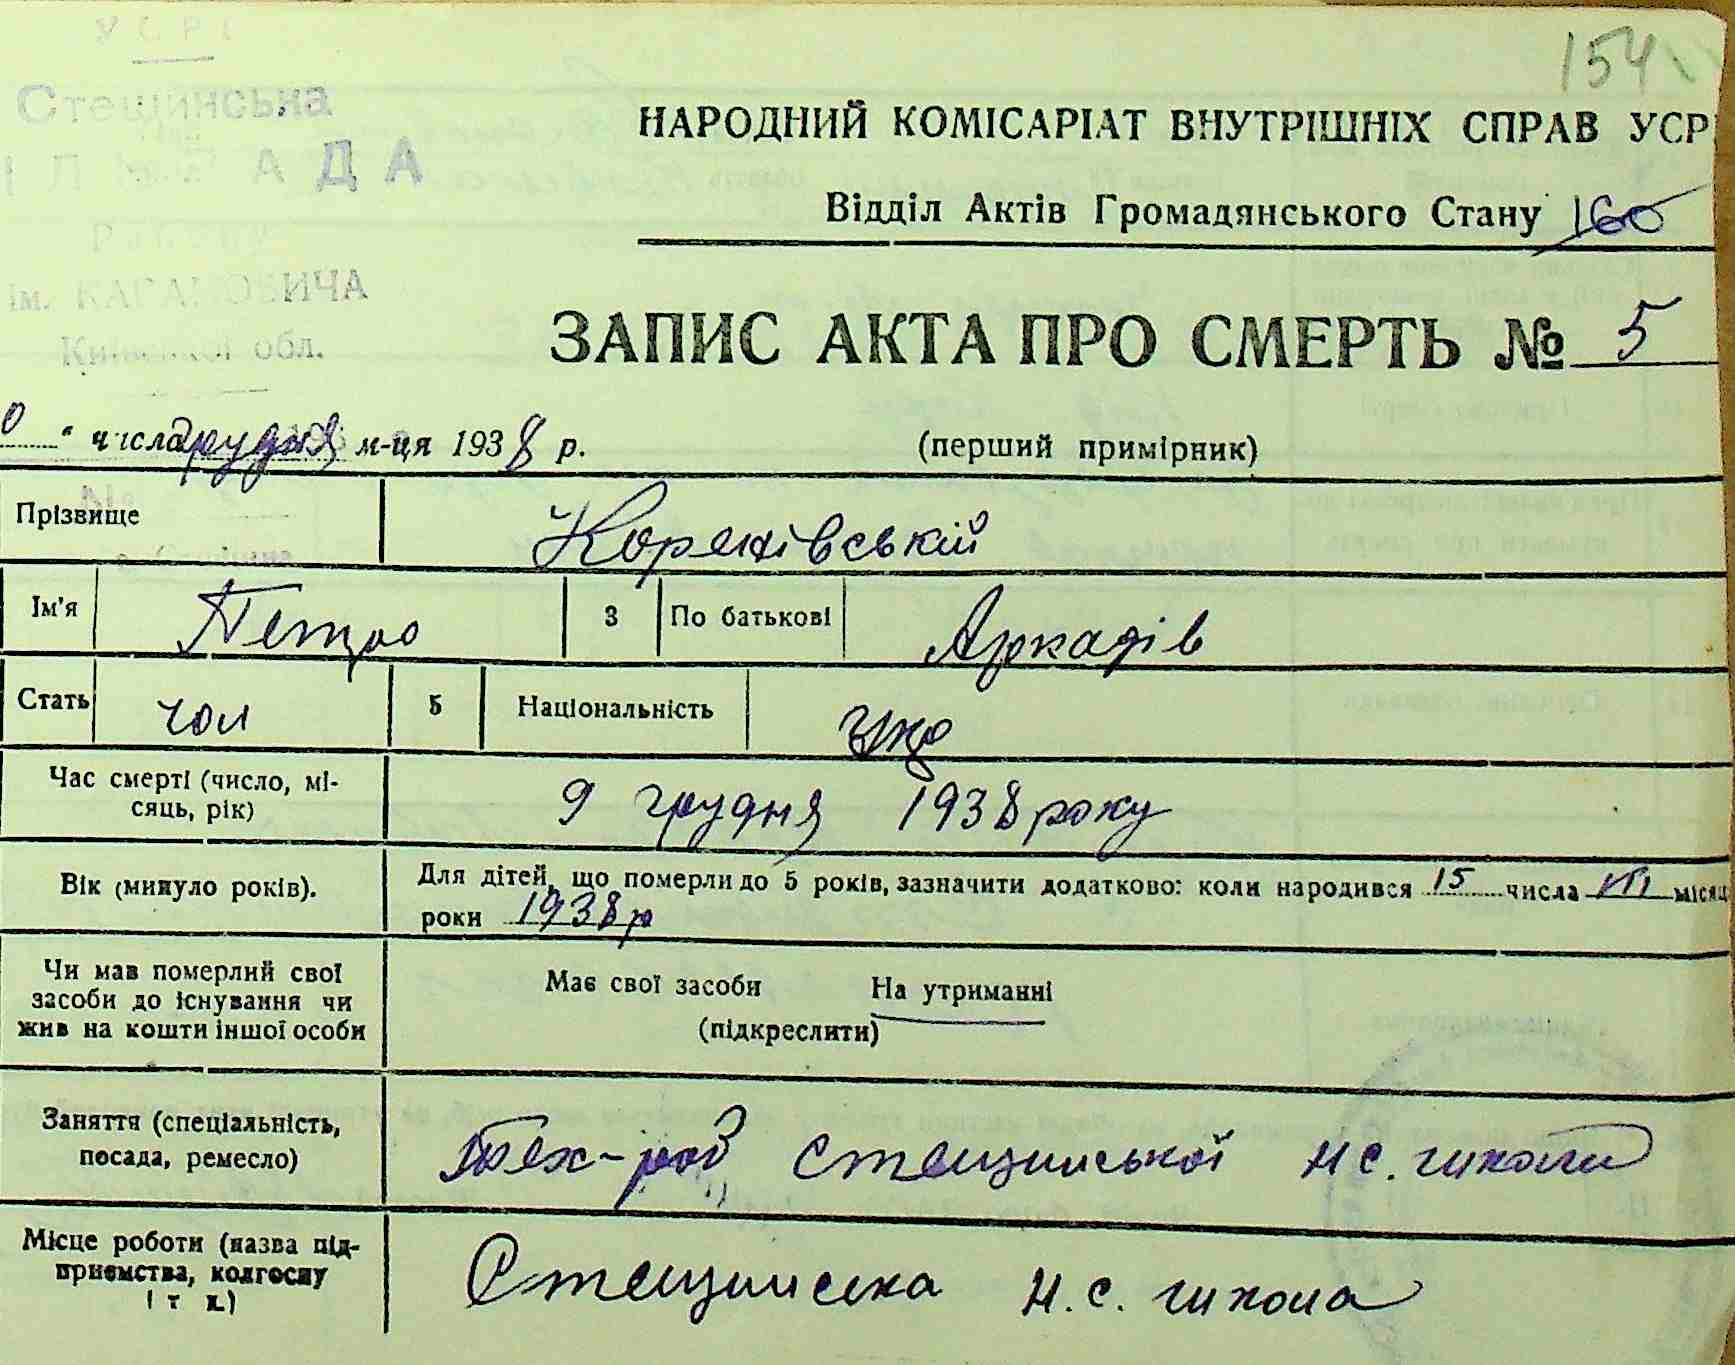 УСРР
154
Стещинська
РАДА
НАРОДНИЙ КОМІСАРІАТ ВНУТРІШНІХ СПРАВ УСР
Відділ Актів Громадянського Стану 160
Ім. КАГАНОВИЧА
Київської обл.
ЗАПИС АКТА ПРО СМЕРТЬ № 5
0 " числа грудня м-ця 1938 р. (перший примірник)
Прізвище
Ім'я Петро 3 По батькові Аркадів
Стать чол 5 Національність укр
Час смерті (число, мі-
сяць, рік) 9 грудня 1938 року
Вік (минуло років). Для дітей, що померли до 5 років, зазначити додатково: коли народився 15 числа місяц
роки 1938 р
Чи мав померлий свої
засоби до існування чи
жив на кошти іншої особи
Має свої засоби На утриманні
(підкреслити)
Заняття (спеціальність,
посада, ремесло) Тех-роб Стещинської н с. школи
Місце роботи (назва під-
приємства, колгоспу
і т. д.) Стещинська н. с. школа